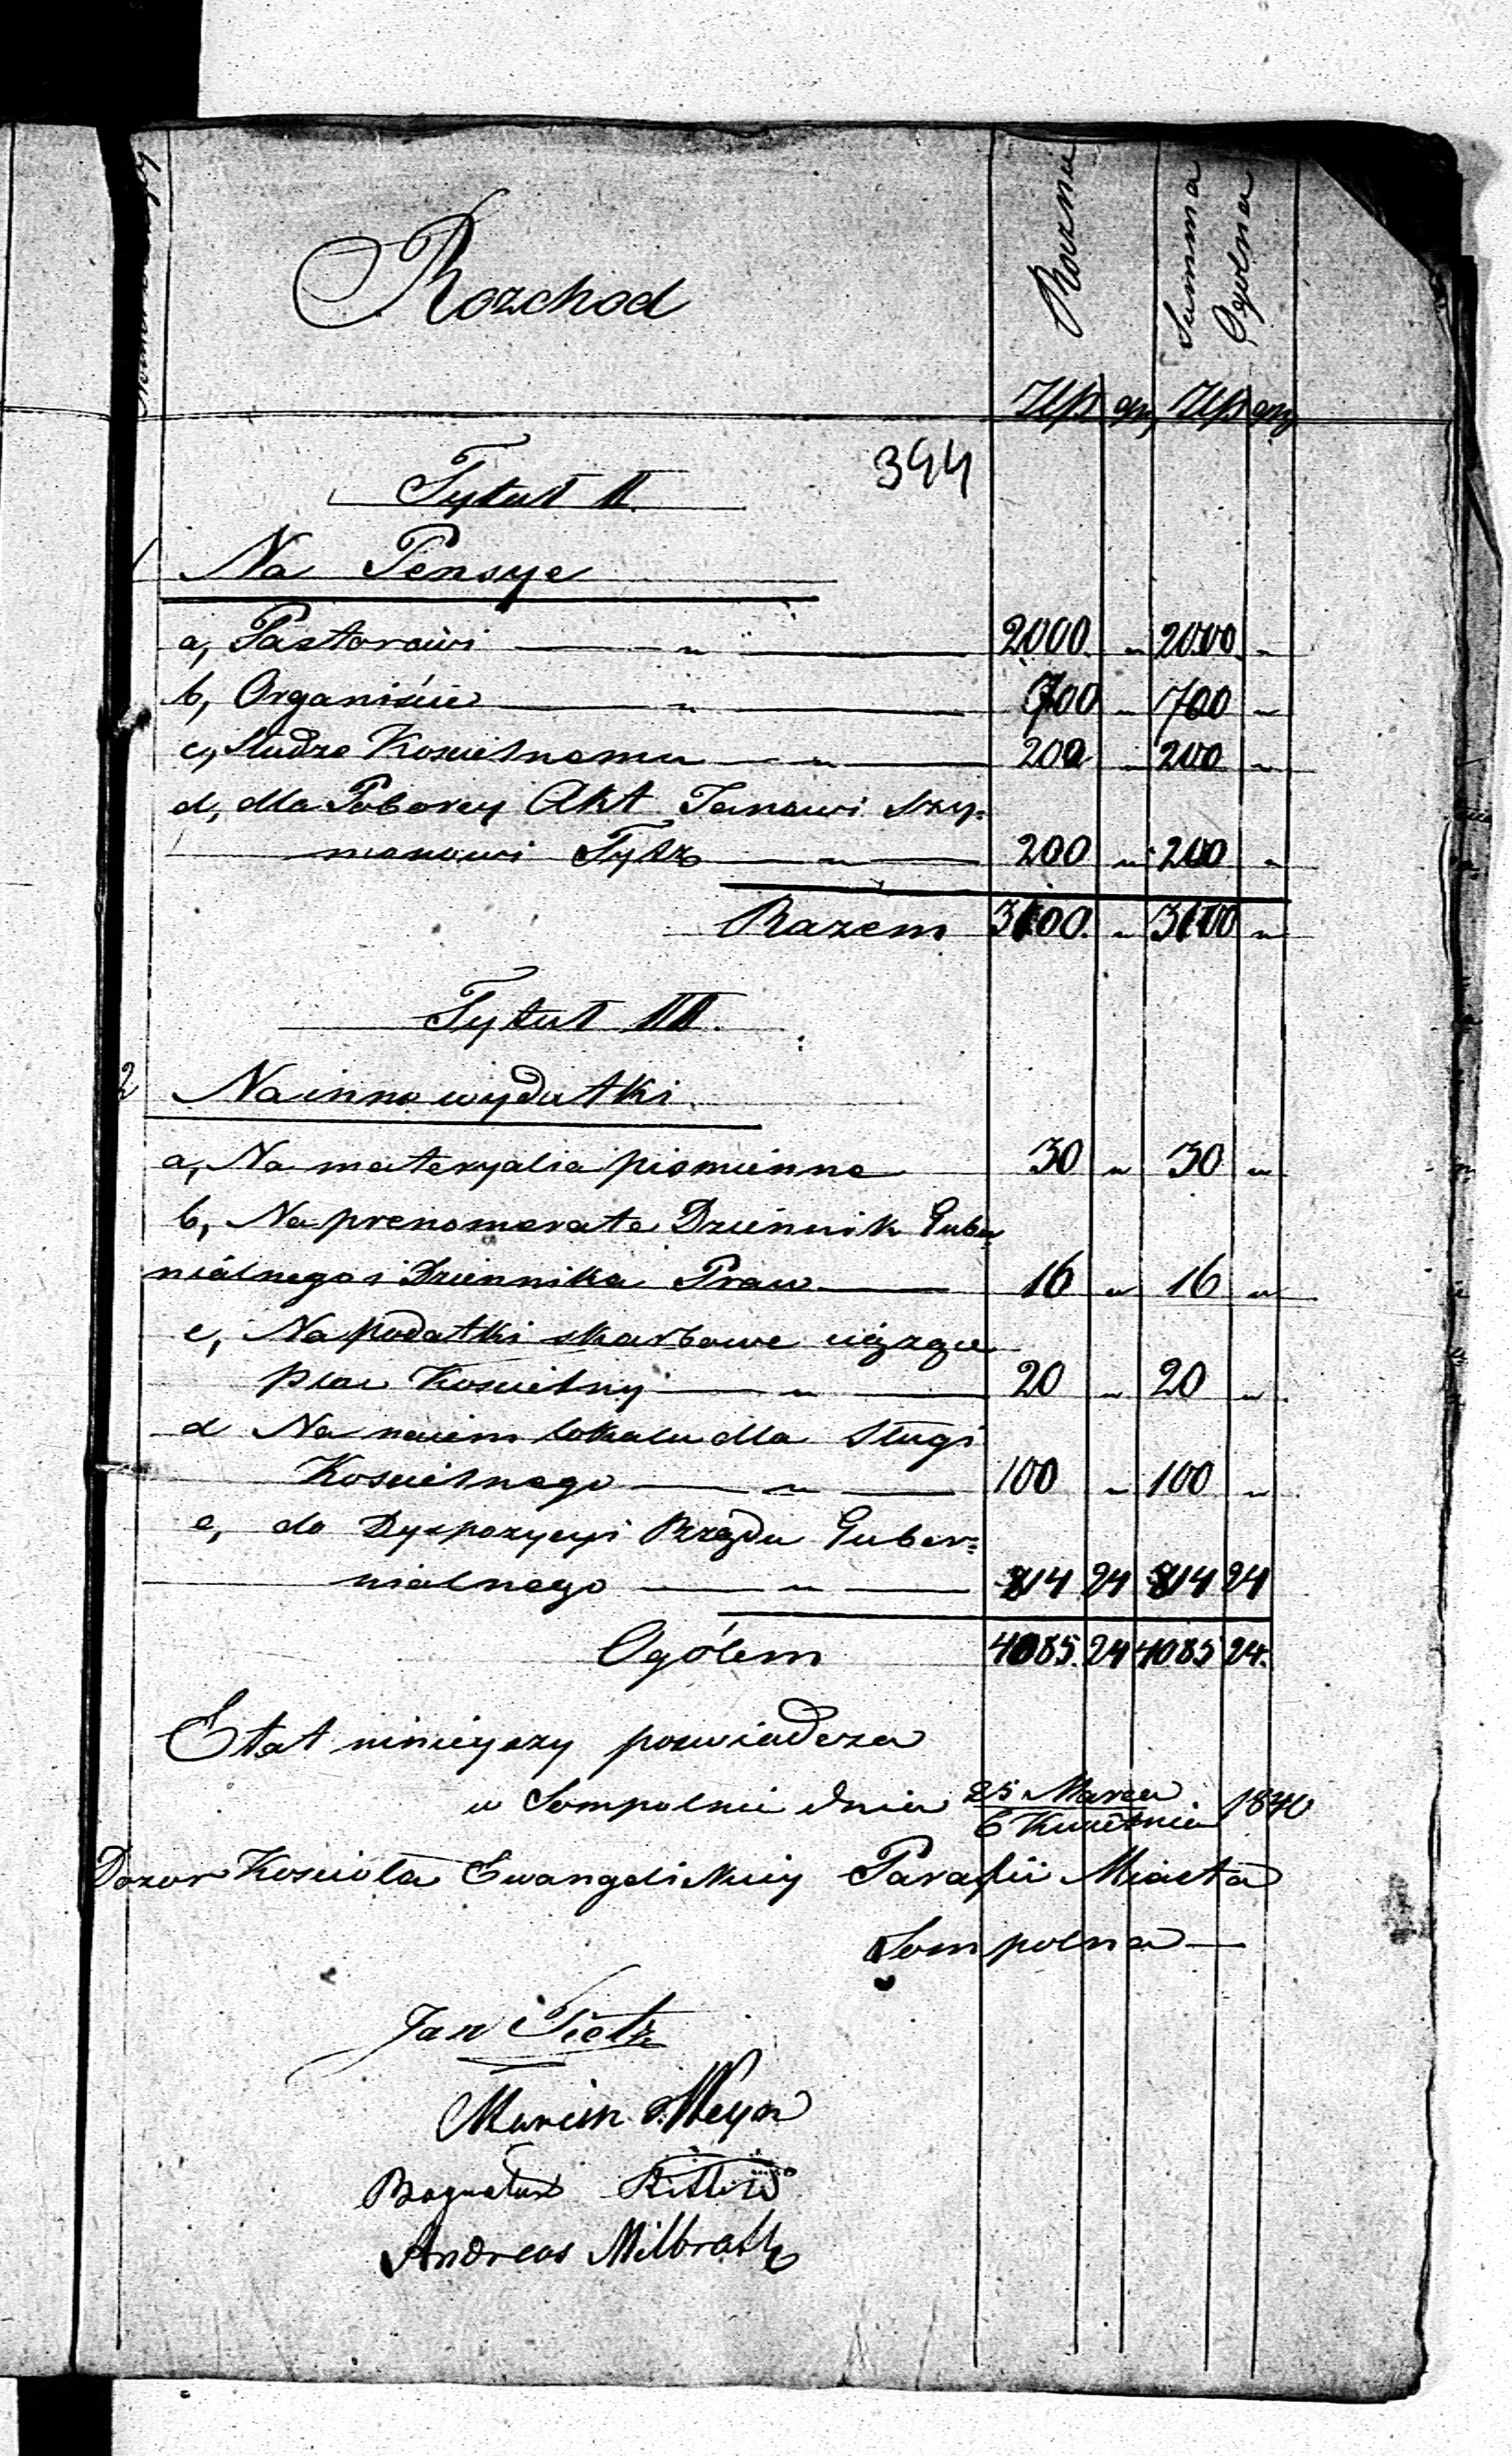 Rozchod
Rocznie
Summa
Ogolna
Złp gr Złp gr
344
Tytuł II.
1 Na Pensye
a, Pastorowi — " — 2000. " 2000. "
b, Organiście — " — 700 " 700 "
c, Słudze Koscielnemu — " — 200 " 200 "
d, dla Poborcy Akt Janowi Szy=
manowi Tytz — " — 200 " 200 "
Razem 3100. " 3100 "
Tytuł III.
2 Na inne wydatki
a, Na materyalia piśmienne 30 " 30 "
b, Na prenomerate Dziennik Guber=
nialnego i Dziennika Praw — 16 " 16 "
c, Na podatki skarbowe
plac Koscielny — " — 20 " 20 "
d Na naiem lokalu dla Sługi
Koscielnego — " — 100 " 100 "
e, do Dyspozycyi Rządu Guber=
nialnego — " — 814 24 814 24
Ogółem 4085. 24 4085 24.
Etat ninieyszy poswiadcza
w Sompolnie dnia 25 Marca / 6 Kwietnia 1840
Dozor Koscioła Ewangelickiey Parafii Miasta
Sompolna —
Jan Tietz
Andreas Milbrath